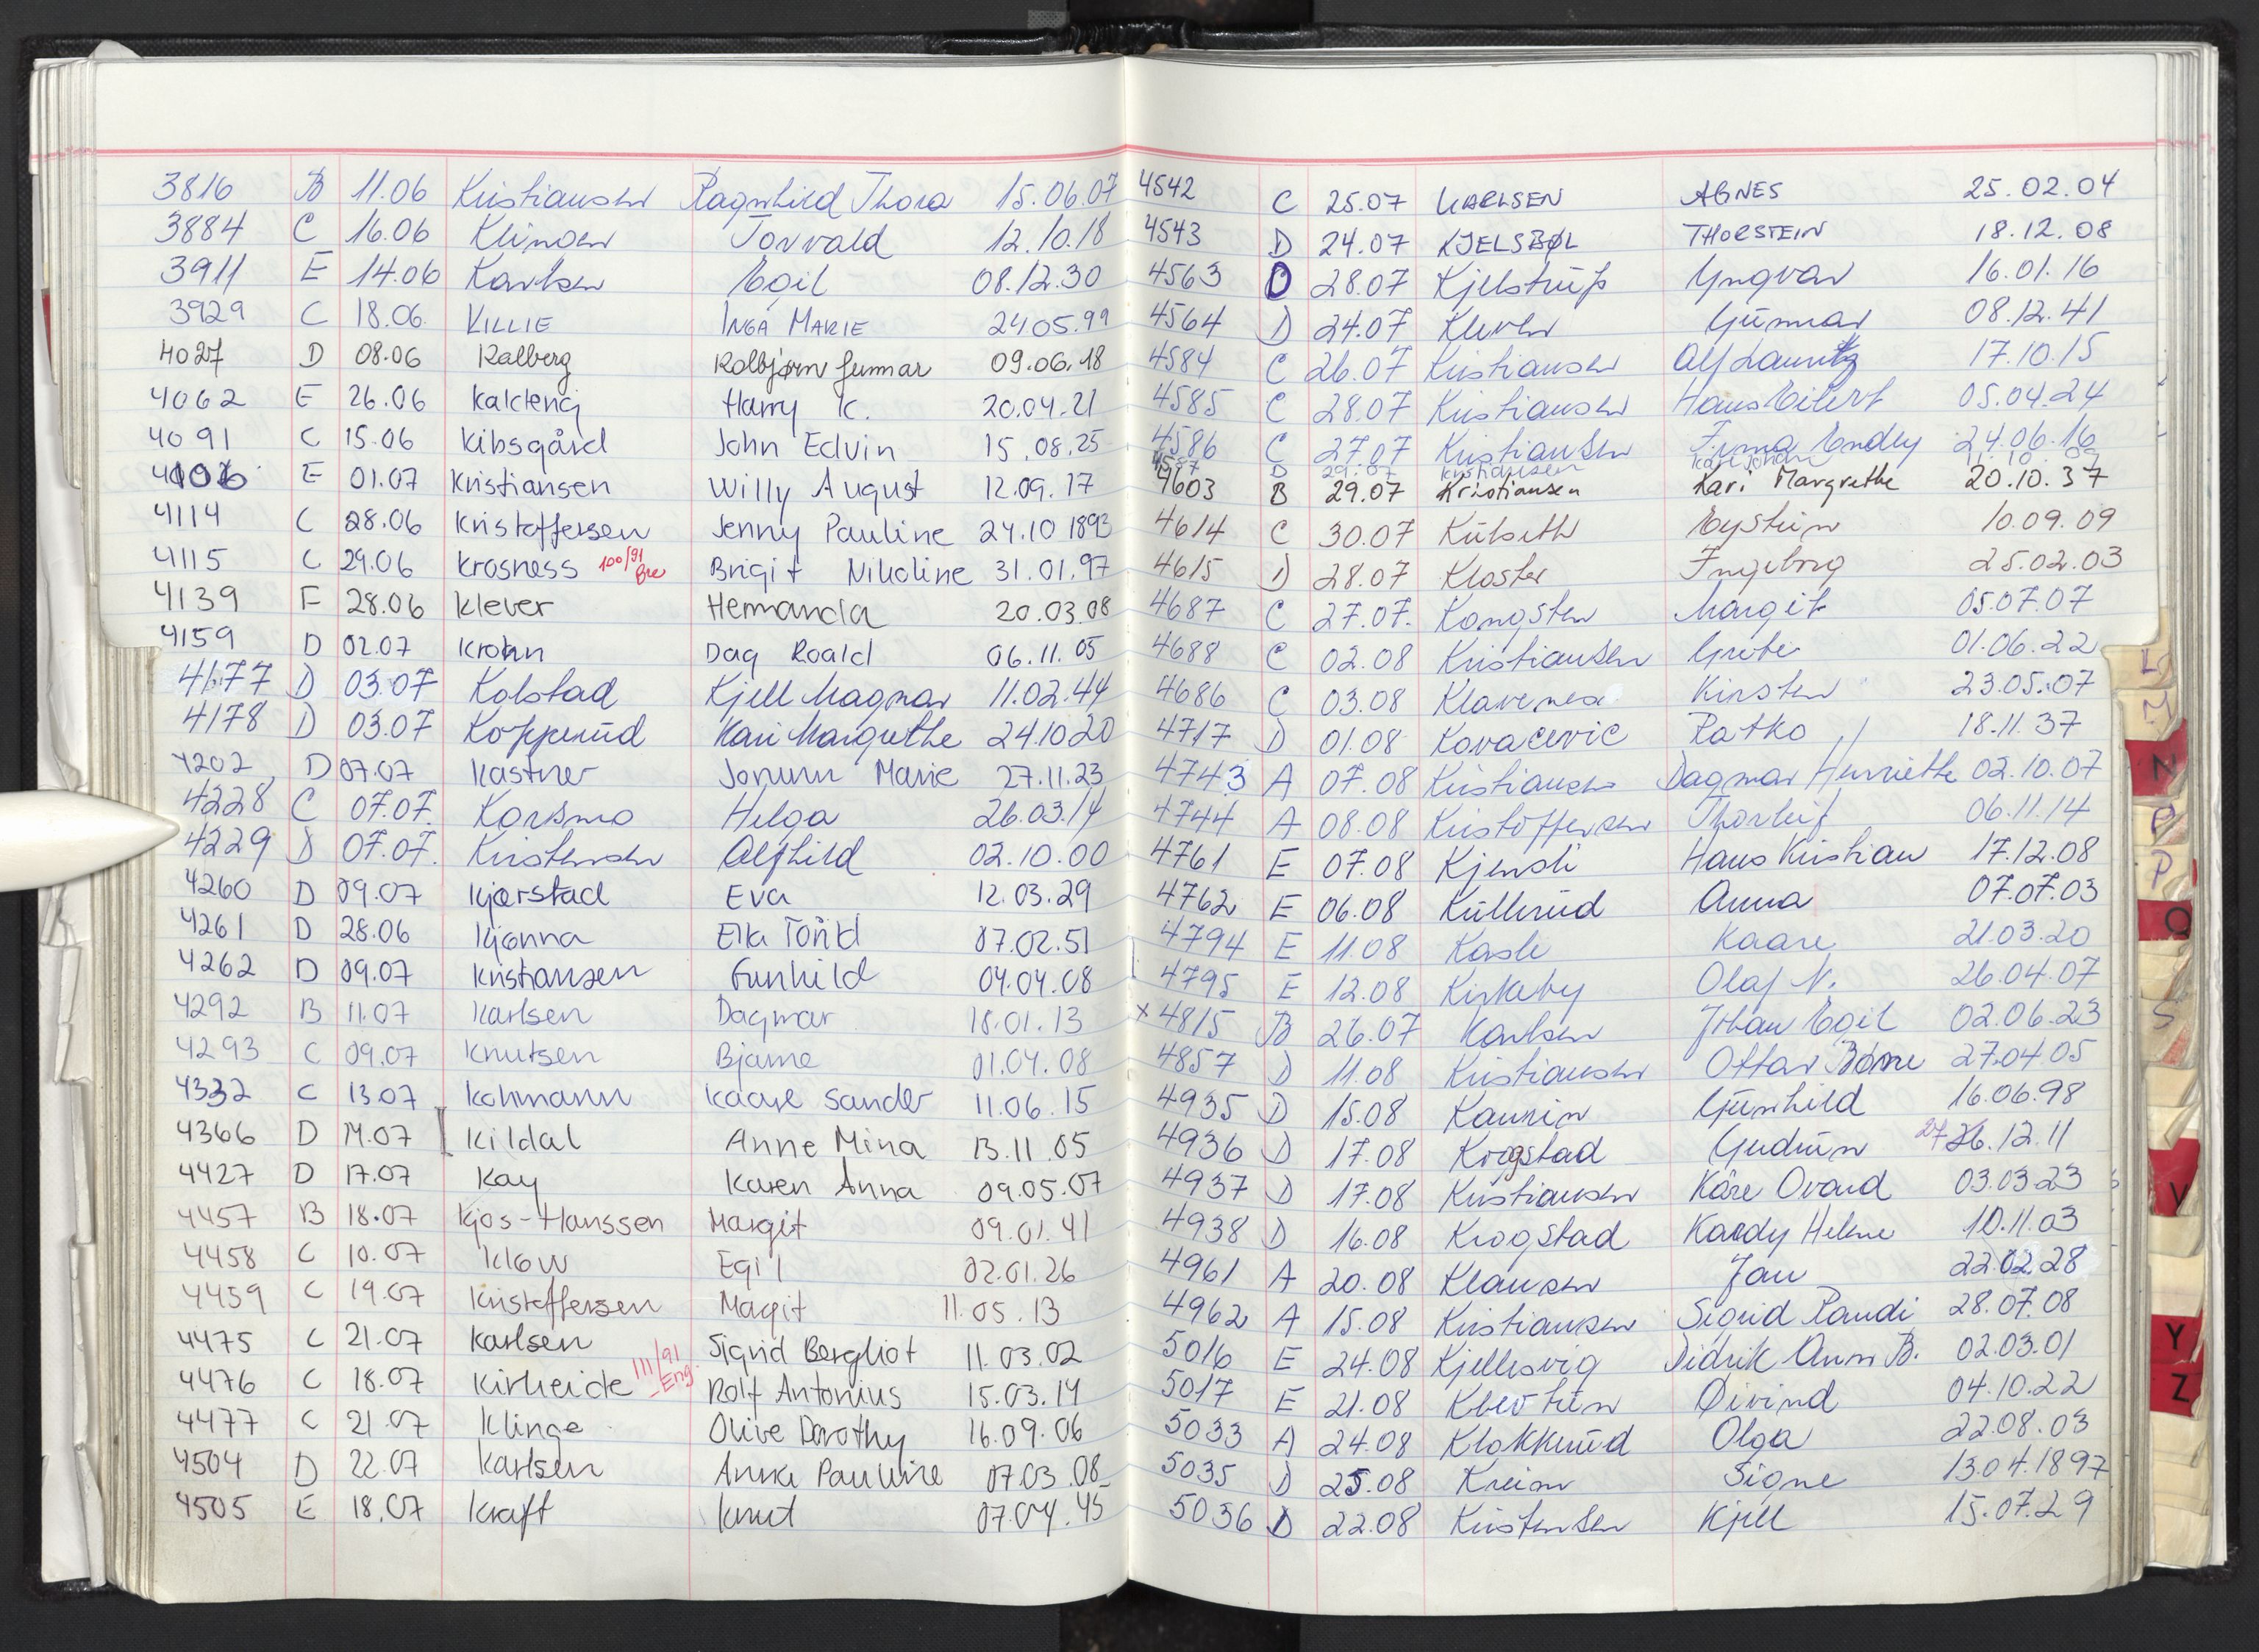 3816 B 11.06 Kristiansen Ragnhild Thora 15.06.07
3884 C 16.06 Klingen Torvald 12.10.18
3911 E 14.06 Karlsen Egil 08.12.30
3929 C 18.06 KILLIE INGA MARIE 24.05.99
4027 D 08.06 Kalberg Kolbjørn Gunnar 09.06.18
4062 E 26.06 Kalcteng Harry K. 20.04.21
4091 C 15.06 Kibsgård John Edvin 15.08.25
E 01.07 Kristiansen Willy August 12.09.17
4114 C 28.06 Kristoffersen Jenny Pauline 24.10 1893
4115 C 29.06 Krosness 100/91 Bre Brigit Nikoline 31.01.97
4139 F 28.06 Klever Hermanda 20.03.08
4159 D 02.07 Krohn Dag Roald 06.11.05
4177 D 03.07 Kolstad Kjell Magnar 11.02.44
4178 D 03.07 Kopperud Kari Margrethe 24.10 20
4202 D 07.07 Kastner Jorunn Marie 27.11.23
4228 C 07.07. Korsmo Helga 26.03.14
4229 D 07.07. Kristensen Alfhild 02.10.00
4260 D 09.07 Kjørstad Eva 12.03.29
4261 D 28.06 Kjønna Ella Torild 07.02.51
4262 D 09.07 Kristiansen Gunhild 04.04.08
4292 B 11.07 Karlsen Dagmar 18.01.13
4293 C 09.07 Knutsen Bjarne 01.04.08
4332 C 13.07 Kohmann Kaare Sander 11.06.15
4366 D 14.07 Kildal Anne Mina 13.11.05
4427 D 17.07 Kay Karen Anna 09.05.07
4457 B 18.07 Kjos-Hanssen Margit 09.01.41
4458 C 10.07 Klow Egil 02.01.26
4459 C 19.07 Kristoffersen Magit 11.05.13
4475 C 21.07 Karlsen Sigrid Bergliot 11.03.02
4476 C 18.07 Kirheide 111/91 Eng. Rolf Antonius 15.03.14
4477 C 21.07 Klinge Olive Dorothy 16.09.06
4504 D 22.07 Karlsen Anna Pauline 07.03.08
4505 E 18.07 Kraft Knut 07.04.45
4542 C 25.07 KARLSEN AGNES 25.02.04
4543 D 24.07 KJELSBØL THORSTEIN 18.12.08
4563 D 28.07 Kjelstrup Yngvar 16.01.16
4564 D 24.07 Kleven Gunnar 08.12.41
4584 C 26.07 Kristiansen Alf Lauritz 17.10.15
4585 C 28.07 Kristiansen Hans Eilert 05.04.24
4586 C 27.07 Kristiansen Endly 24.06.16
4587 D 29.07 Kristiansen Kåre Johan
4603 B 29.07 Kristiansen Kari Margrethe 20.10.37
4614 C 30.07 Kulseth Eystein 10.09.09
4615 D 28.07 Kloster Ingeborg 25.02.03
4687 C 27.07. Kongsten Margit 05.07.07
4688 C 02.08 Kristiansen Grete 01.06.22
4686 C 03.08 Klavenes Kirsten 23.05.07
4717 D 01.08 Kovacevic Ratko 18.11.37
4743 A 07.08 Kristiansen Dagmar Henriette 02.10.07
4744 A 08.08 Kristoffersen Thorleif 06.11.14
4761 E 07.08 Kjensli Hans Kristian 17.12.08
4762 E 06.08 Kullerud Anna 07.07.03
4794 E 11.08 Kasli Kaare 21.03.20
4795 E 12.08 Kirkeby Olaf N. 26.04.07
x 4815 B 26.07 Karlsen Johan Egil 02.06.23
4857 D 11.08 Kristiansen Ottar 27.04.05
4935 D 15.08 Kaurin Gunhild 16.06.98
4936 D 17.08 Krogstad Gudrun 27 26.12.11
4937 D 17.08 Kristiansen Kåre Ovard 03.03.23
4938 D 16.08 Krogstad Kardy Helene 10.11.03
4961 A 20.08 Klausen Jan 22.02.28
4962 A 15.08 Kristiansen Sigrid Randi 28.07.08
5016 E 24.08 Kjellesvig Didrik Arnm B. 02.03.01
5017 E 21.08 Klevtun Øivind 04.10.22
5033 A 24.08 Klokkerud Olga 22.08.03
5035 D 25.08 Kreim Signe 13.04.1897
5036 D 22.08 Kristensen Kjell 15.07.29
L
N
O
P
Q
S
V
Y
Z